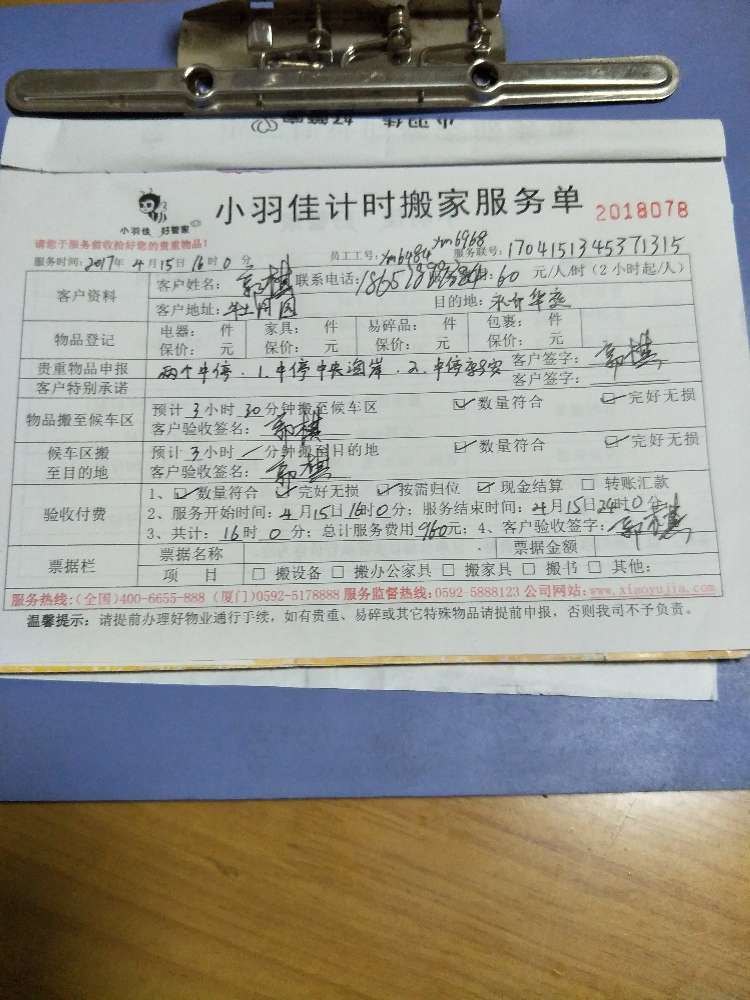 小羽佳 好管家
小羽佳 好管家
小羽佳计时搬家服务单 2018078
请您于服务前收拾好您的贵重物品!
服务时间:2017年 4月15日16时0分 员工工号:xm6484 xm6968 服务联号:1704151345371315
客户资料 客户姓名: 联系电话: 60 元/人/时(2小时起/人)
客户地址: 目的地:
物品登记 电器: 件 家具: 件 易碎品: 件 包裹: 件
保价: 元 保价: 元 保价: 元 保价: 元
贵重物品申报 两个中停.1.中停中央海岸.2.中停 客户签字:郭棋
客户特别承诺 客户签字:
物品搬至候车区 预计3小时30分钟搬至候车区 ☑数量符合 ☑完好无损
客户验收签名:郭棋
候车区搬至目的地 预计3小时/分钟搬至目的地 ☑数量符合 ☑完好无损
客户验收签名:郭棋
验收付费 1、☑数量符合 ☑完好无损 ☑按需归位 ☑现金结算 □转账汇款
2、服务开始时间:4月15日16时0分;服务结束时间:4月15日24时0分
3、共计:16时0分;总计服务费用960元;4、客户验收签字:郭棋
票据栏 票据名称 票据金额
项 目 □搬设备 □搬办公家具 □搬家具 □搬书 □其他:
服务热线:(全国)400-6655-888 (厦门)0592-5178888 服务监督热线:0592-5888123 公司网站:www.xiaoyujia.com
温馨提示:请提前办理好物业通行手续,如有贵重、易碎或其它特殊物品请提前申报,否则我司不予负责。